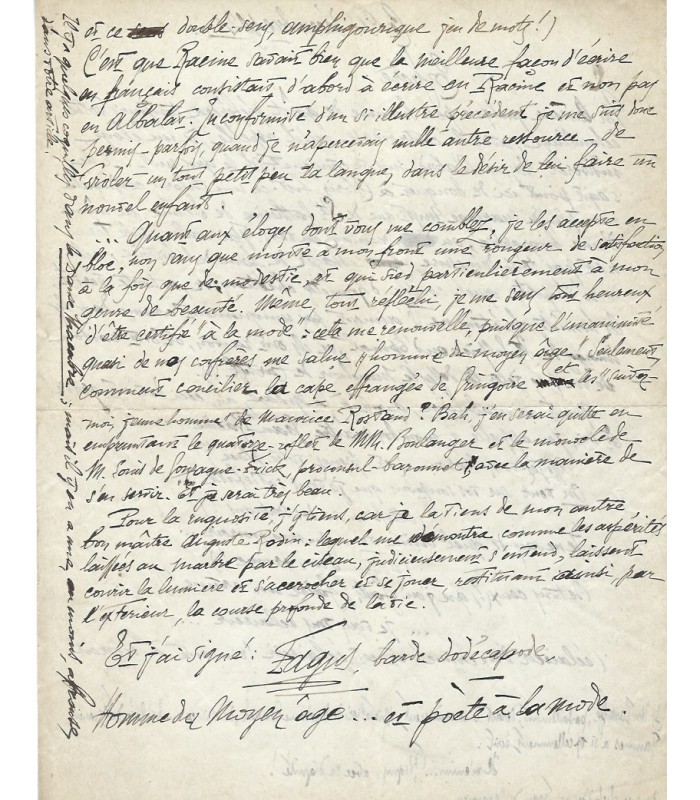 et ce double-sens, amphigourique jeu de mots !)
C'est que Racine savait bien que la meilleure façon d'écrire
en français consistait d'abord à écrire en Racine et non pas
en Albalat. En conformité d'un si illustre précédent je me suis donc
permis - parfois, quand je n'apercevais nulle autre ressource - de
violer un tout petit peu la langue, dans le désir de lui faire un
nouvel enfant.
... Quant aux éloges dont vous me comblez, je les accepte en
bloc, non sans que monte à mon front une rougeur de satisfaction
à la fois que de modestie, et qui sied particulièrement à mon
genre de beauté. Même, tout réfléchi, je me sens tout heureux
d'être certifié "à la mode" : cela me renouvelle, puisque l'unanimité
quasi de nos confrères me salue "homme du moyen âge". Seulement
comment concilier la cape effrangée de Gringoire et les "suivez
moi, jeune homme" de Maurice Rostand ? Bah, j'en serai quitte en
empruntant le quatorze-reflets de M. Boulanger et le monocle de
M. proconsul-baronnet, avec la manière de
s'en servir. Et je serai très beau.
Pour la rugosité, j'y tiens, car je la tiens de mon autre
bon maître Auguste Rodin : lequel me démontra comme les aspérités
laissées au marbre par le ciseau, judicieusement s'entend, laissent
courir la lumière et s'accrocher et se jouer restituant ainsi, par
l'extérieur, la course profonde de la vie.
Et j'ai signé : Fagus, barde dodécapode.
Homme du Moyen âge... et poète à la mode.
Il y a quelques coquilles dans la Danse Macabre ; mais il y en a une, au moins, affreuse,
dans votre article